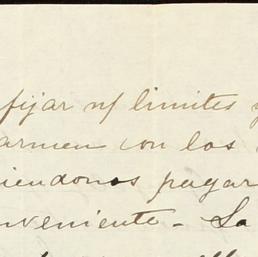 fijar n/ limites y
armen con los
iendonos pagar
nveniente - La